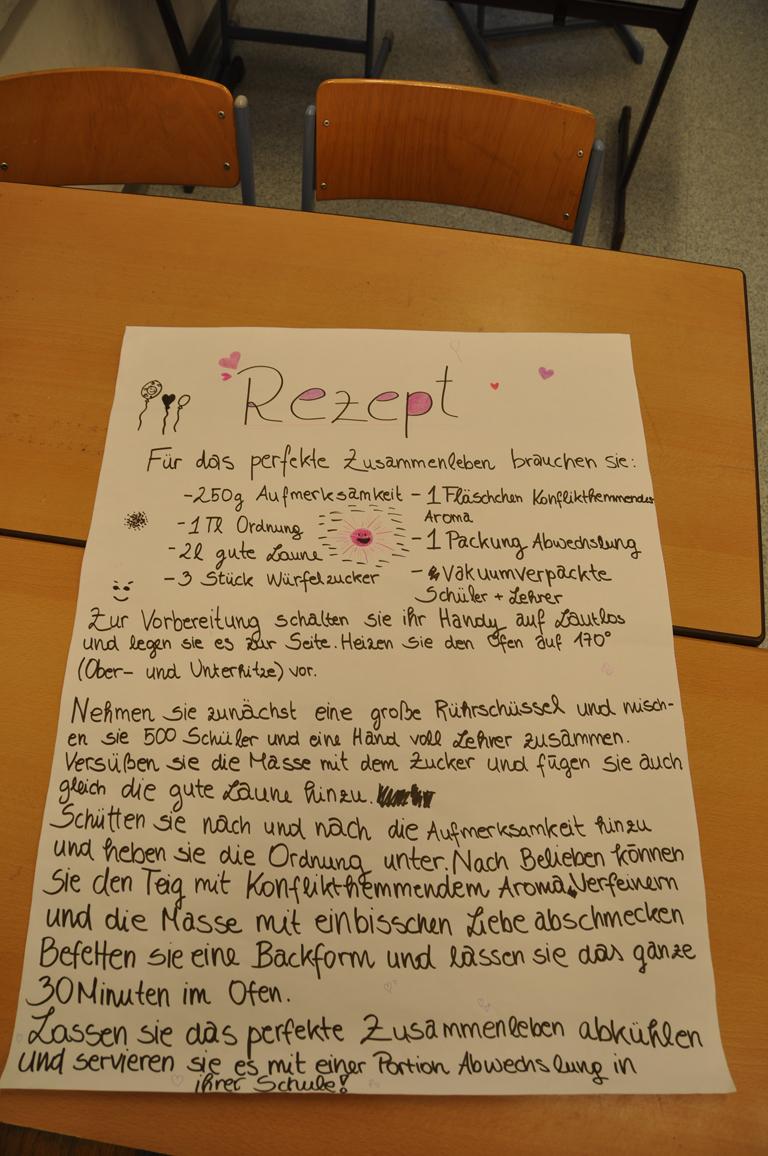 Rezept
Für das perfekte Zusammenleben brauchen sie:
-250g Aufmerksamkeit
-1Tl Ordnung
-2l gute Laune
-3 Stück Würfelzucker
-1 Fläschchen Konflikthemmendes
Aroma
-1 Packung Abwechslung
- Vakuumverpackte
Schüler + Lehrer
Zur Vorbereitung schalten sie ihr Handy auf Lautlos
und legen sie es zur Seite. Heizen sie den Ofen auf 170°
(Ober- und Unterhitze) vor.
Nehmen sie zunächst eine große Rührschüssel und misch-
en sie 500 Schüler und eine Hand voll Lehrer zusammen.
Versüßen sie die Masse mit dem Zucker und fügen sie auch
gleich die gute Laune hinzu.
Schütten sie nach und nach die Aufmerksamkeit hinzu
und heben sie die Ordnung unter. Nach Belieben können
sie den Teig mit Konflikthemmendem Aroma Verfeinern
und die Masse mit einbisschen Liebe abschmecken
Befetten sie eine Backform und lassen sie das ganze
30 Minuten im Ofen.
Lassen sie das perfekte Zusammenleben abkühlen
und servieren sie es mit einer Portion Abwechslung in
ihrer Schule!